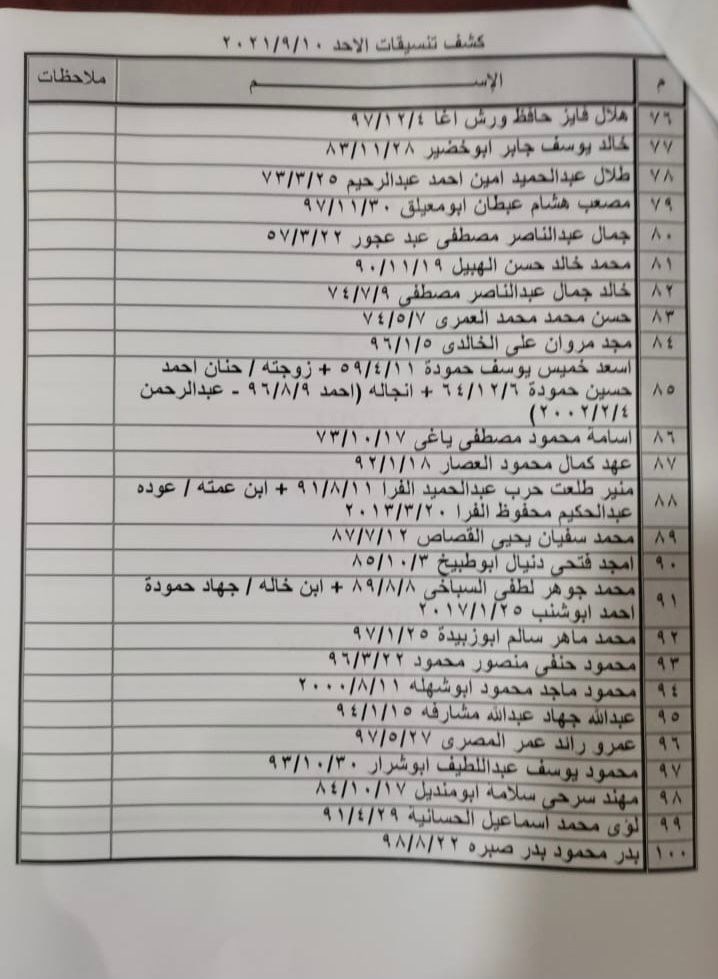 كشف تنسيقات الاحد ٢٠٢١/٩/١٠
م الإســـم ملاحظات
٧٦ هلال فايز حافظ ورش اغا ٩٧/١٢/٤
٧٧ خالد يوسف جابر ابوخضير ٨٣/١١/٢٨
٧٨ طلال عبدالحميد امين احمد عبدالرحيم ٧٣/٣/٢٥
٧٩ مصعب هشام عبطان ابومعيلق ٩٧/١١/٣٠
٨٠ جمال عبدالناصر مصطفى عبد عجور ٥٧/٣/٢٢
٨١ محمد خالد حسن الهبيل ٩٠/١١/١٩
٨٢ خالد جمال عبدالناصر مصطفى ٧٤/٧/٩
٨٣ حسن محمد محمد العمرى ٧٤/٥/٧
٨٤ مجد مروان على الخالدى ٩٦/١/٥
٨٥ اسعد خميس يوسف حمودة ٥٩/٤/١١ + زوجته / حنان احمد
حسين حمودة ٦٤/١٢/٦ + انجاله (احمد ٩٦/٨/٩ - عبدالرحمن
٢٠٠٢/٢/٤)
٨٦ اسامة محمود مصطفى ياغى ٧٣/١٠/١٧
٨٧ عهد كمال محمود العصار ٩٢/١/١٨
٨٨ منير طلعت حرب عبدالحميد الفرا ٩١/٨/١١ + ابن عمته / عوده
عبدالحكيم محفوظ الفرا ٢٠١٣/٣/٢٠
٨٩ محمد سفيان يحيى القصاص ٨٧/٧/١٢
٩٠ امجد فتحى دنيال ابوطبيخ ٨٥/١٠/٣
٩١ محمد جوهر لطفى السباخى ٨٩/٨/٨ + ابن خاله / جهاد حمودة
احمد ابوشنب ٢٠١٧/١/٢٥
٩٢ محمد ماهر سالم ابوزبيدة ٩٧/١/٢٥
٩٣ محمود حنفى منصور محمود ٩٦/٣/٢٢
٩٤ محمود ماجد محمود ابوشهله ٢٠٠٠/٨/١١
٩٥ عبدالله جهاد عبدالله مشارفه ٩٤/١/١٥
٩٦ عمرو رائد عمر المصرى ٩٧/٥/٢٧
٩٧ محمود يوسف عبداللطيف ابوشرار ٩٣/١٠/٣٠
٩٨ مهند سرحى سلامة ابومنديل ٨٤/١٠/١٧
٩٩ لؤى محمد اسماعيل الحسانية ٩١/٤/٢٩
١٠٠ بدر محمود بدر صبره ٩٨/٨/٢٢